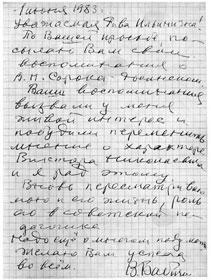 1 июня 1983.
Уважаемая Рива Ильинична!
По Вашей просьбе по-
сылаю Вам свои
воспоминания о
В. Н. Сорока-Росинском.
Ваши воспоминания
вызвали у меня
живой интерес и
побудили переменить
мнение о характере
Виктора Николаевича
и я рад этому.
Вновь пересматриваю
мною и его жизнь, роль
его в советской пе-
дагогике
Надо еще о многом подумать
желаю Вам успеха
во всём.